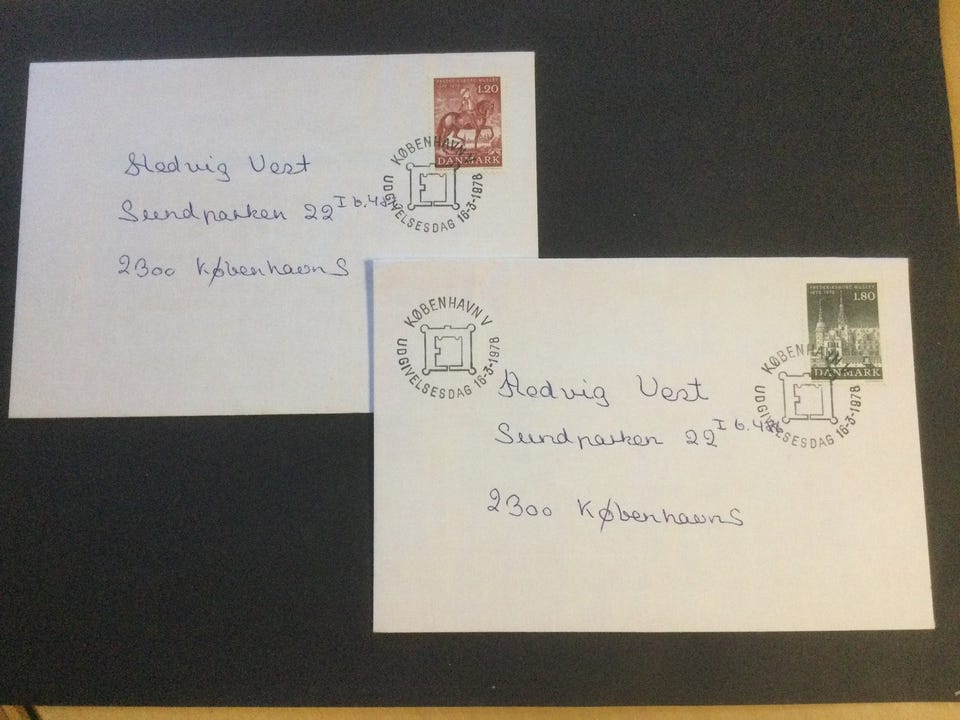 FREDERIKSBORG MUSEET
1.20
DANMARK
KØBENHAVN V
UDGIVELSESDAG 16-3-1978
Hedvig Vest
Sundparken 22 I b.48
2300 København S
FREDERIKSBORG MUSEET
1878 1978
1.80
DANMARK
KØBENHAVN V
UDGIVELSESDAG 16-3-1978
KØBENHAVN
UDGIVELSESDAG 16-3-1978
Hedvig Vest
Sundparken 22 I b.48
2300 København S